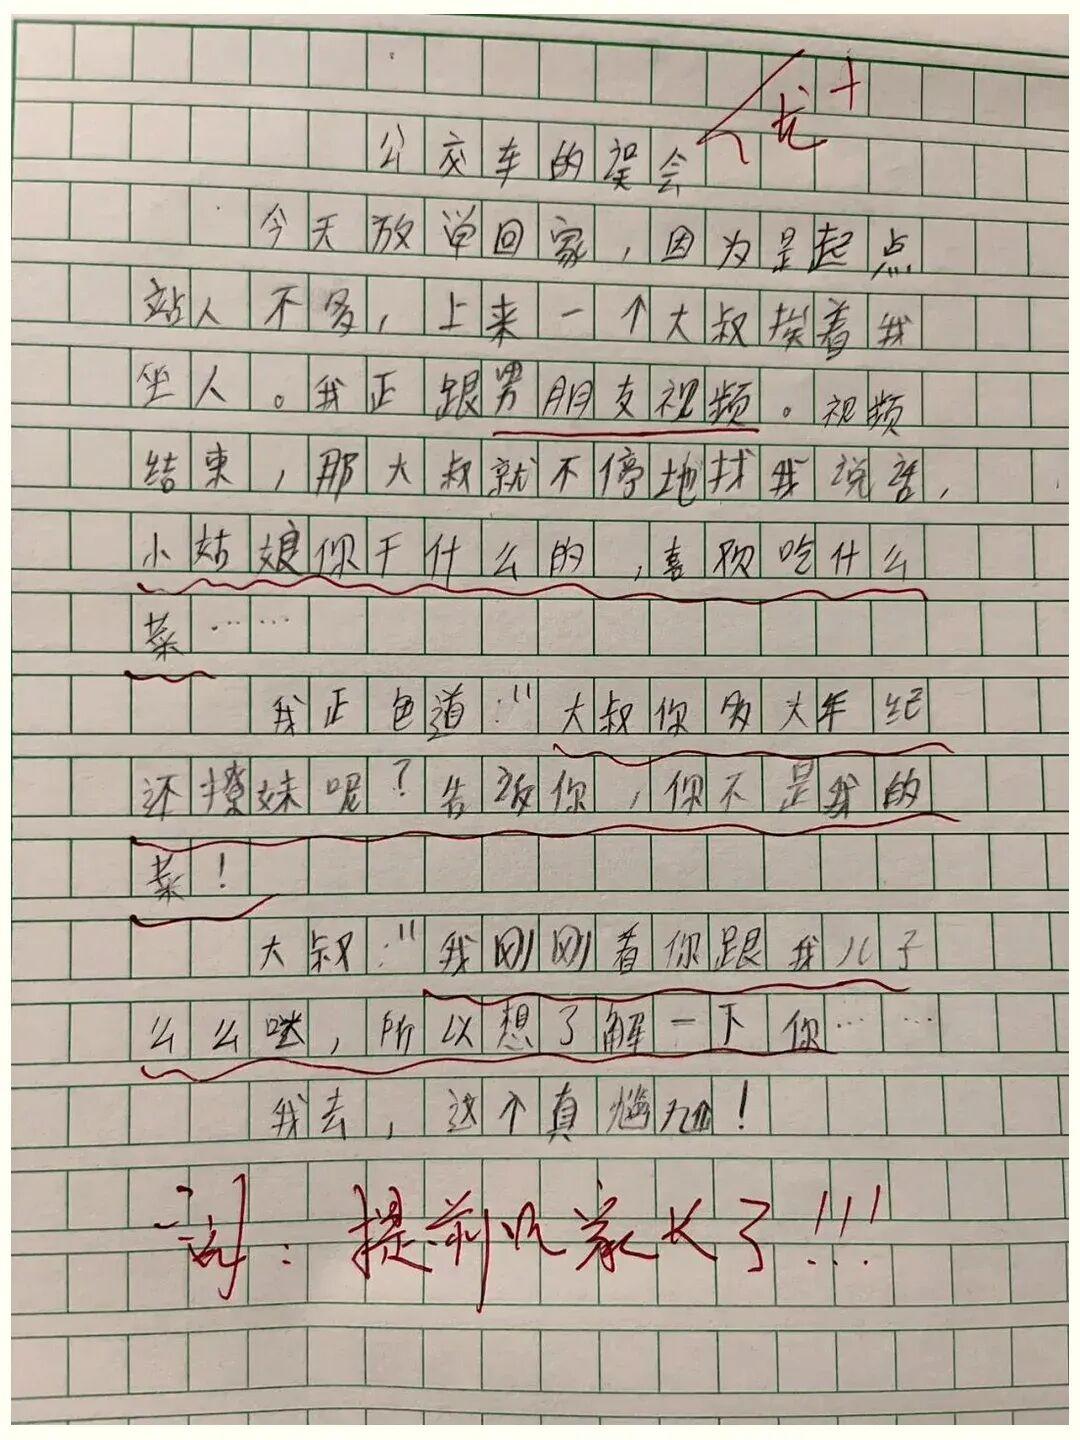 优+
公交车的误会
今天放单回家，因为是起点
站人不多，上来一个大叔挨着我
坐人。我正跟男朋友视频。视频
结束，那大叔就不停地找我说话，
小姑娘你干什么的，喜欢吃什么
菜……
我正色道："大叔你多大年纪
还撩妹呢？告诉你，你不是我的
菜！
大叔："我刚刚看你跟我儿子
么么哒，所以想了解一下你……
我去，这个真尴尬！
评：提前见家长了!!!